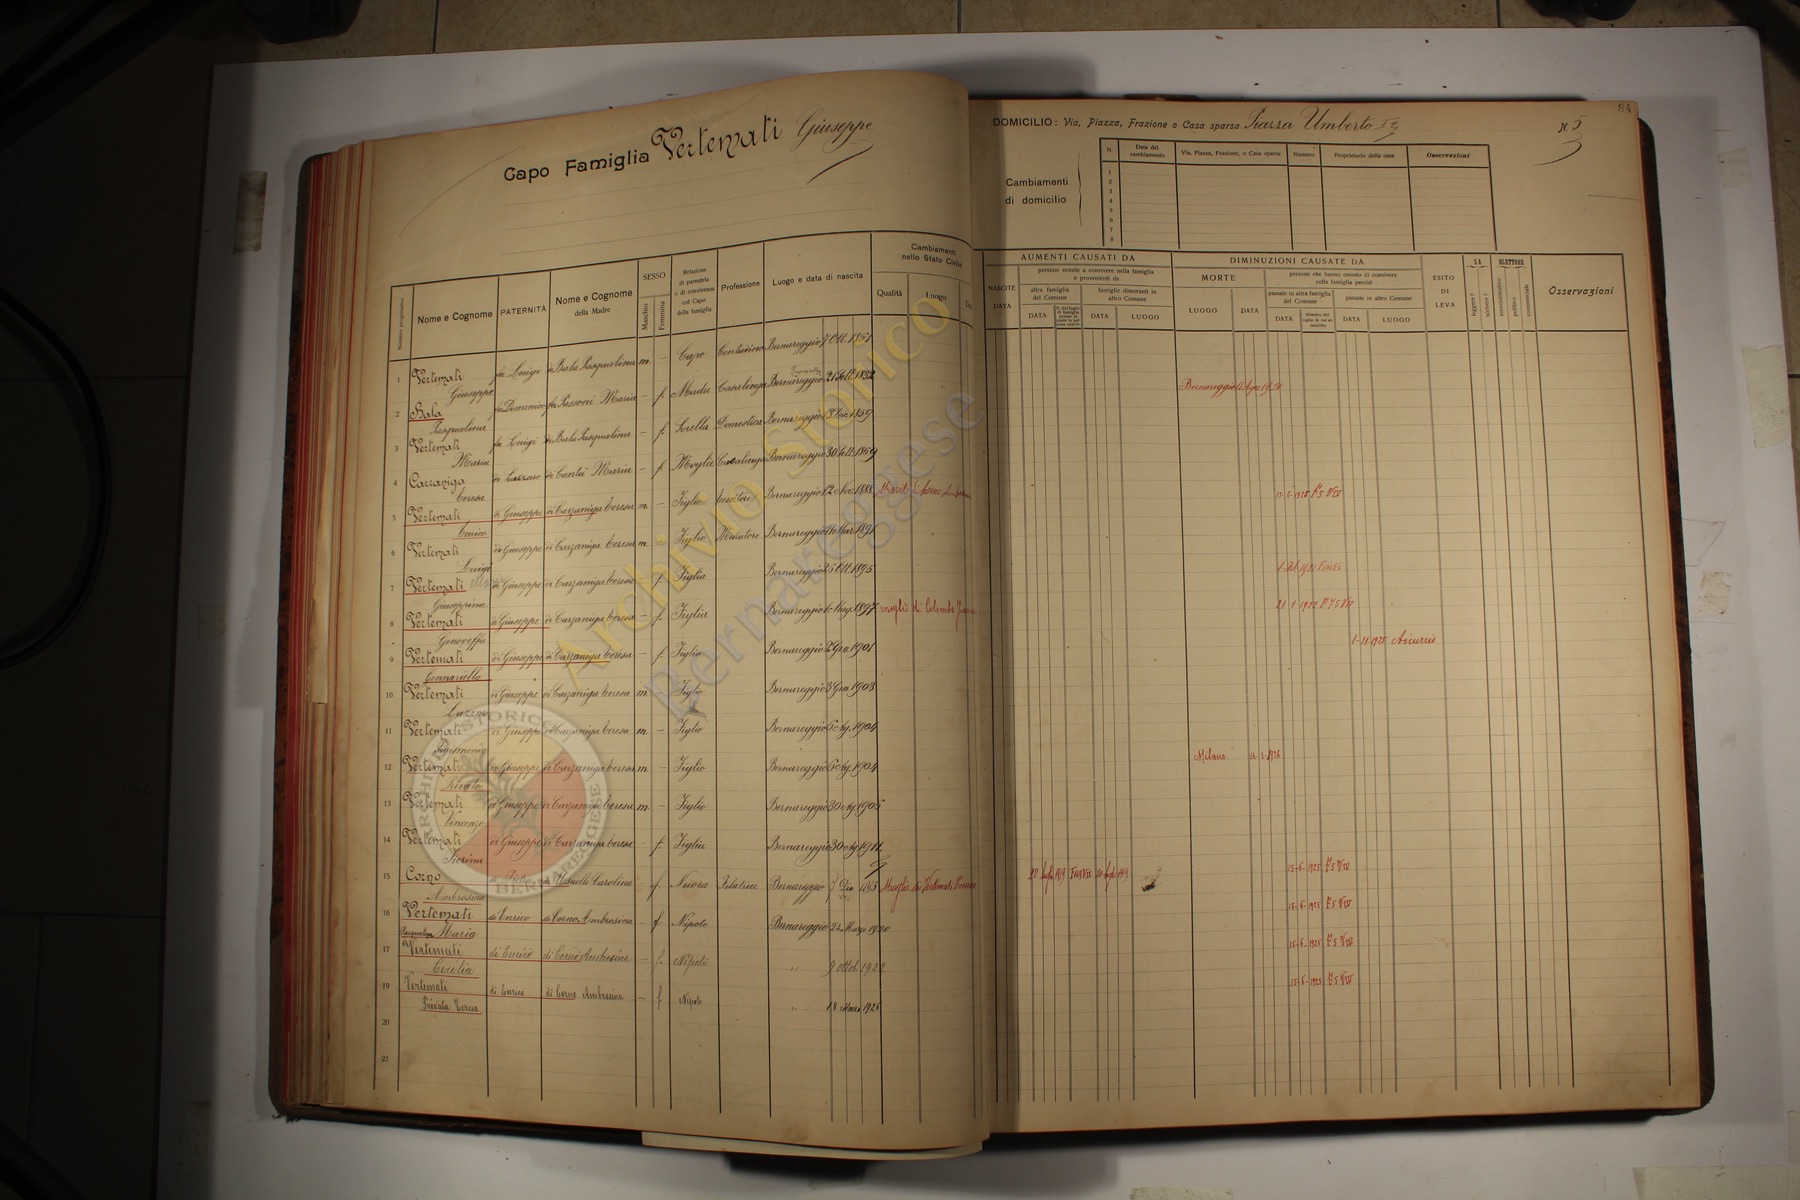 Capo Famiglia Vertemati Giuseppe
84
DOMICILIO: Via, Piazza, Frazione o Casa sparsa Piazza Umberto I
N. 5
Cambiamenti
di domicilio
N. Data del cambiamento Via, Piazza, Frazione, o Casa sparsa Numero Proprietario della casa Osservazioni
1
2
3
4
5
6
7
8
Numero progressivo
Nome e Cognome
PATERNITÀ
Nome e Cognome
della Madre
SESSO
Maschio
Femmina
Relazione
di parentela
o di convivenza
col Capo
della famiglia
Professione
Luogo e data di nascita
Cambiamenti
nello Stato Civile
Qualità
Luogo
AUMENTI CAUSATI DA
NASCITE
DATA
persone venute a convivere nella famiglia
e provenienti da
altra famiglia
del Comune
DATA
famiglie dimoranti in
altro Comune
DATA
LUOGO
DIMINUZIONI CAUSATE DA
MORTE
LUOGO
DATA
persone che hanno cessato di convivere
colla famiglia perchè
passate in altra famiglia
del Comune
DATA
passate in altro Comune
DATA
LUOGO
ESITO
DI
LEVA
SA
leggere?
scrivere?
ELETTORE
amministrativo
politico
commerciale
Osservazioni
1 Vertemati Giuseppe fu Luigi di Bala Pasqualina m. – Capo Contadino Bernareggio 7 Ott. 1851
2 Bala Pasqualina fu Domenico fu Passoni Maria – f. Madre Casalinga Bernareggio 21 Sett. 1832 Bernareggio
3 Vertemati Maria fu Luigi di Bala Pasqualina – f. Sorella Domestica Bernareggio 13 Dic. 1859
4 Cazzaniga Teresa di Lazzaro di Cantù Maria – f. Moglie Casalinga Bernareggio 30 Sett. 1859
5 Vertemati Enrico di Giuseppe di Cazzaniga Teresa m. – Figlio Tessitore Bernareggio 12 Nov. 1888 Marito 15-6-1925 F° 5 V IV
6 Vertemati Luigi di Giuseppe di Cazzaniga Teresa m. – Figlio Muratore Bernareggio 16 Mar. 1891
7 Vertemati Giuseppina di Giuseppe di Cazzaniga Teresa – f. Figlia Bernareggio 25 Ott. 1895
8 Vertemati Genoveffa di Giuseppe di Cazzaniga Teresa – f. Figlia Bernareggio 10 Mag. 1897 moglie di Colombo 21 1 1922
9 Vertemati Gennariella di Giuseppe di Cazzaniga Teresa – f. Figlia Bernareggio 2 Gen. 1901 1-11-1925 Aicurzio
10 Vertemati Lazzaro di Giuseppe di Cazzaniga Teresa m. – Figlio Bernareggio 3 Gen. 1903
11 Vertemati Sigismondo di Giuseppe di Cazzaniga Teresa m. – Figlio Bernareggio 6 Ag. 1904
12 Vertemati Privato di Giuseppe di Cazzaniga Teresa m. – Figlio Bernareggio 6 Ag. 1904 Milano
13 Vertemati Vincenzo di Giuseppe di Cazzaniga Teresa m. – Figlio Bernareggio 30 Ag. 1905
14 Vertemati Pierina di Giuseppe di Cazzaniga Teresa – f. Figlia Bernareggio 30 Ag. 1911
15 Corno Ambrosina di Carolina – f Nuora Bernareggio 7 Dic Moglie di Vertemati Enrico 15-6-1925 F° 5 V IV
16 Vertemati Pasqualina Maria di Enrico di Corno Ambrosina – f Nipote Bernareggio 22 Marzo 1920 15-6-1925 F° 5 V IV
17 Vertemati Cecilia di Enrico di Corno Ambrosina – f Nipoti " 9 ottob. 1922 15-6-1925 F° 5 V IV
19 Vertemati Privata di Enrico di Corno Ambrosina – f Nipoti " 18 Marzo 15-6-1925 F° 5 V IV
20
21
Archivio Storico
Bernareggese
ARCHIVIO STORICO
BERNAREGGESE